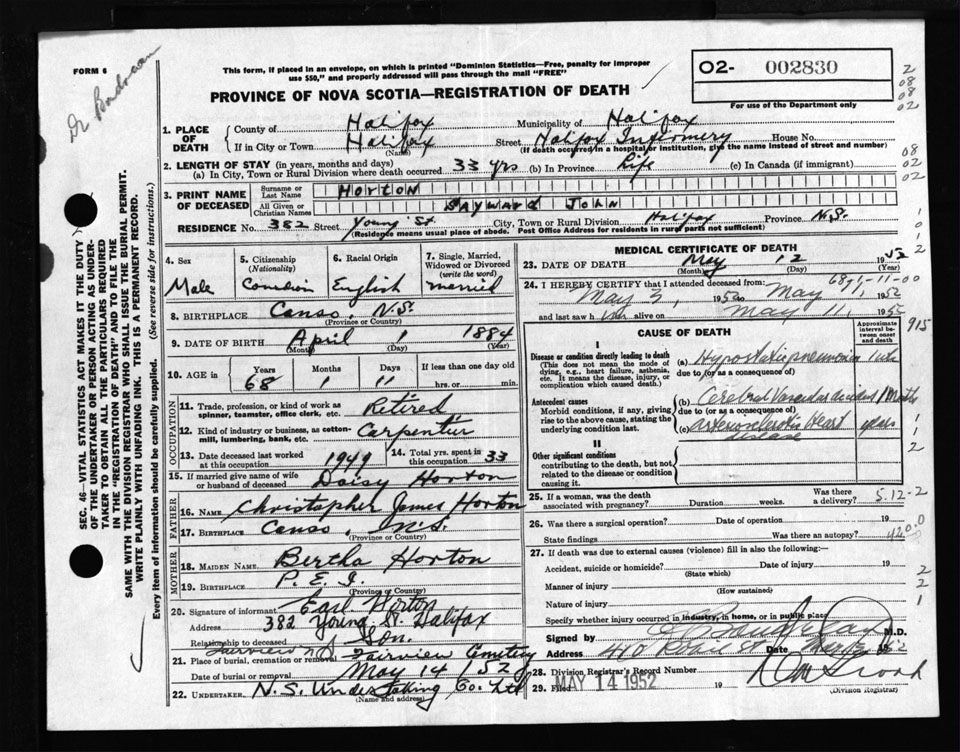 FORM 6
This form, if placed in an envelope, on which is printed "Dominion Statistics—Free, penalty for improper
use $50," and properly addressed will pass through the mail "FREE"
PROVINCE OF NOVA SCOTIA—REGISTRATION OF DEATH
O2- 002830
For use of the Department only
1. PLACE OF DEATH
County of Halifax Municipality of Halifax
If in City or Town Halifax Street Halifax Infirmery House No.
(Name) (If death occurred in a hospital or institution, give the name instead of street and number)
2. LENGTH OF STAY (in years, months and days)
(a) In City, Town or Rural Division where death occurred 33 yrs (b) In Province Life (c) In Canada (if immigrant)
3. PRINT NAME OF DECEASED
Surname or Last Name HORTON
All Given or Christian Names SAYWARD JOHN
RESIDENCE No. 382 Street Young St. City, Town or Rural Division Halifax Province N.S.
(Residence means usual place of abode. Post Office Address for residents in rural parts not sufficient)
4. Sex Male
5. Citizenship (Nationality) Canadian
6. Racial Origin English
7. Single, Married, Widowed or Divorced (write the word) married
8. BIRTHPLACE Canso, N.S.
(Province or Country)
9. DATE OF BIRTH April 1 1884
(Month) (Day) (Year)
10. AGE in Years 68 Months 1 Days 11 If less than one day old
hrs. or min.
OCCUPATION
11. Trade, profession, or kind of work as
spinner, teamster, office clerk, etc. Retired
12. Kind of industry or business, as cotton-
mill, lumbering, bank, etc. Carpenter
13. Date deceased last worked
at this occupation 1949
14. Total yrs. spent in
this occupation 33
15. If married give name of wife
or husband of deceased Daisy Horton
FATHER
16. NAME Christopher James Horton
17. BIRTHPLACE Canso, N.S.
(Province or Country)
MOTHER
18. MAIDEN NAME Bertha Horton
19. BIRTHPLACE P.E.I.
(Province or Country)
20. Signature of informant Earl Horton
Address 382 Young St. Halifax
Relationship to deceased Son.
Fairview N.S.
21. Place of burial, cremation or removal Fairview Cemetery
Date of burial or removal May 14 1952
22. UNDERTAKER N.S. Undertaking Co. Ltd
(Name and address)
MEDICAL CERTIFICATE OF DEATH
23. DATE OF DEATH May 12 1952
(Month) (Day) (Year)
24. I HEREBY CERTIFY that I attended deceased from:
May 3, 1952 to May 11, 1952
and last saw him alive on May 11, 1952
CAUSE OF DEATH
Approximate interval between onset and death
I
Disease or condition directly leading to death
(This does not mean the mode of
dying, e.g., heart failure, asthenia,
etc. It means the disease, injury, or
complication which caused death.)
(a) Hypostatic pneumonia 1 wk
due to (or as a consequence of)
Antecedent causes
Morbid conditions, if any, giving
rise to the above cause, stating the
underlying condition last.
(b) Cerebral Vascular Accident months
due to (or as a consequence of)
(c) arteriosclerotic heart disease years
II
Other significant conditions
contributing to the death, but not
related to the disease or condition
causing it.
25. If a woman, was the death
associated with pregnancy? Duration weeks. Was there a delivery?
5.12-2
26. Was there a surgical operation? Date of operation 19
State findings Was there an autopsy?
420.0
27. If death was due to external causes (violence) fill in also the following:—
Accident, suicide or homicide? Date of injury 19
(State which)
Manner of injury
(How sustained)
Nature of injury
Specify whether injury occurred in industry, in home, or in public place
Signed by M.D.
Address Date
28. Division Registrar's Record Number
29. Filed MAY 14 1952 19
(Division Registrar)
SEC. 46—VITAL STATISTICS ACT MAKES IT THE DUTY
OF THE UNDERTAKER OR PERSON ACTING AS UNDER-
TAKER TO OBTAIN ALL THE PARTICULARS REQUIRED
IN THE "REGISTRATION OF DEATH" AND TO FILE THE
SAME WITH THE DIVISION REGISTRAR WHO SHALL ISSUE THE BURIAL PERMIT.
WRITE PLAINLY WITH UNFADING INK. THIS IS A PERMANENT RECORD.
Every item of information should be carefully supplied. (See reverse side for instructions.)
2
08
08
02
08
02
02
915